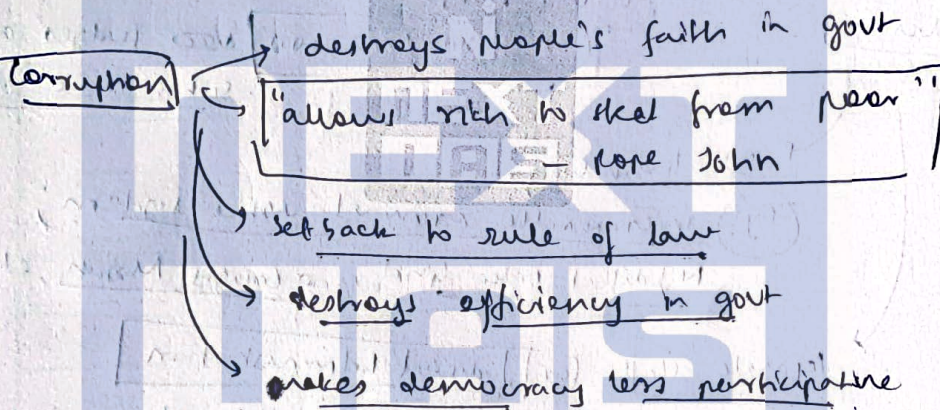 Corruption
destroys people's faith in govt
"allows rich to steal from poor"
- Pope John
setback to rule of law
destroys efficiency in govt
makes democracy less participative